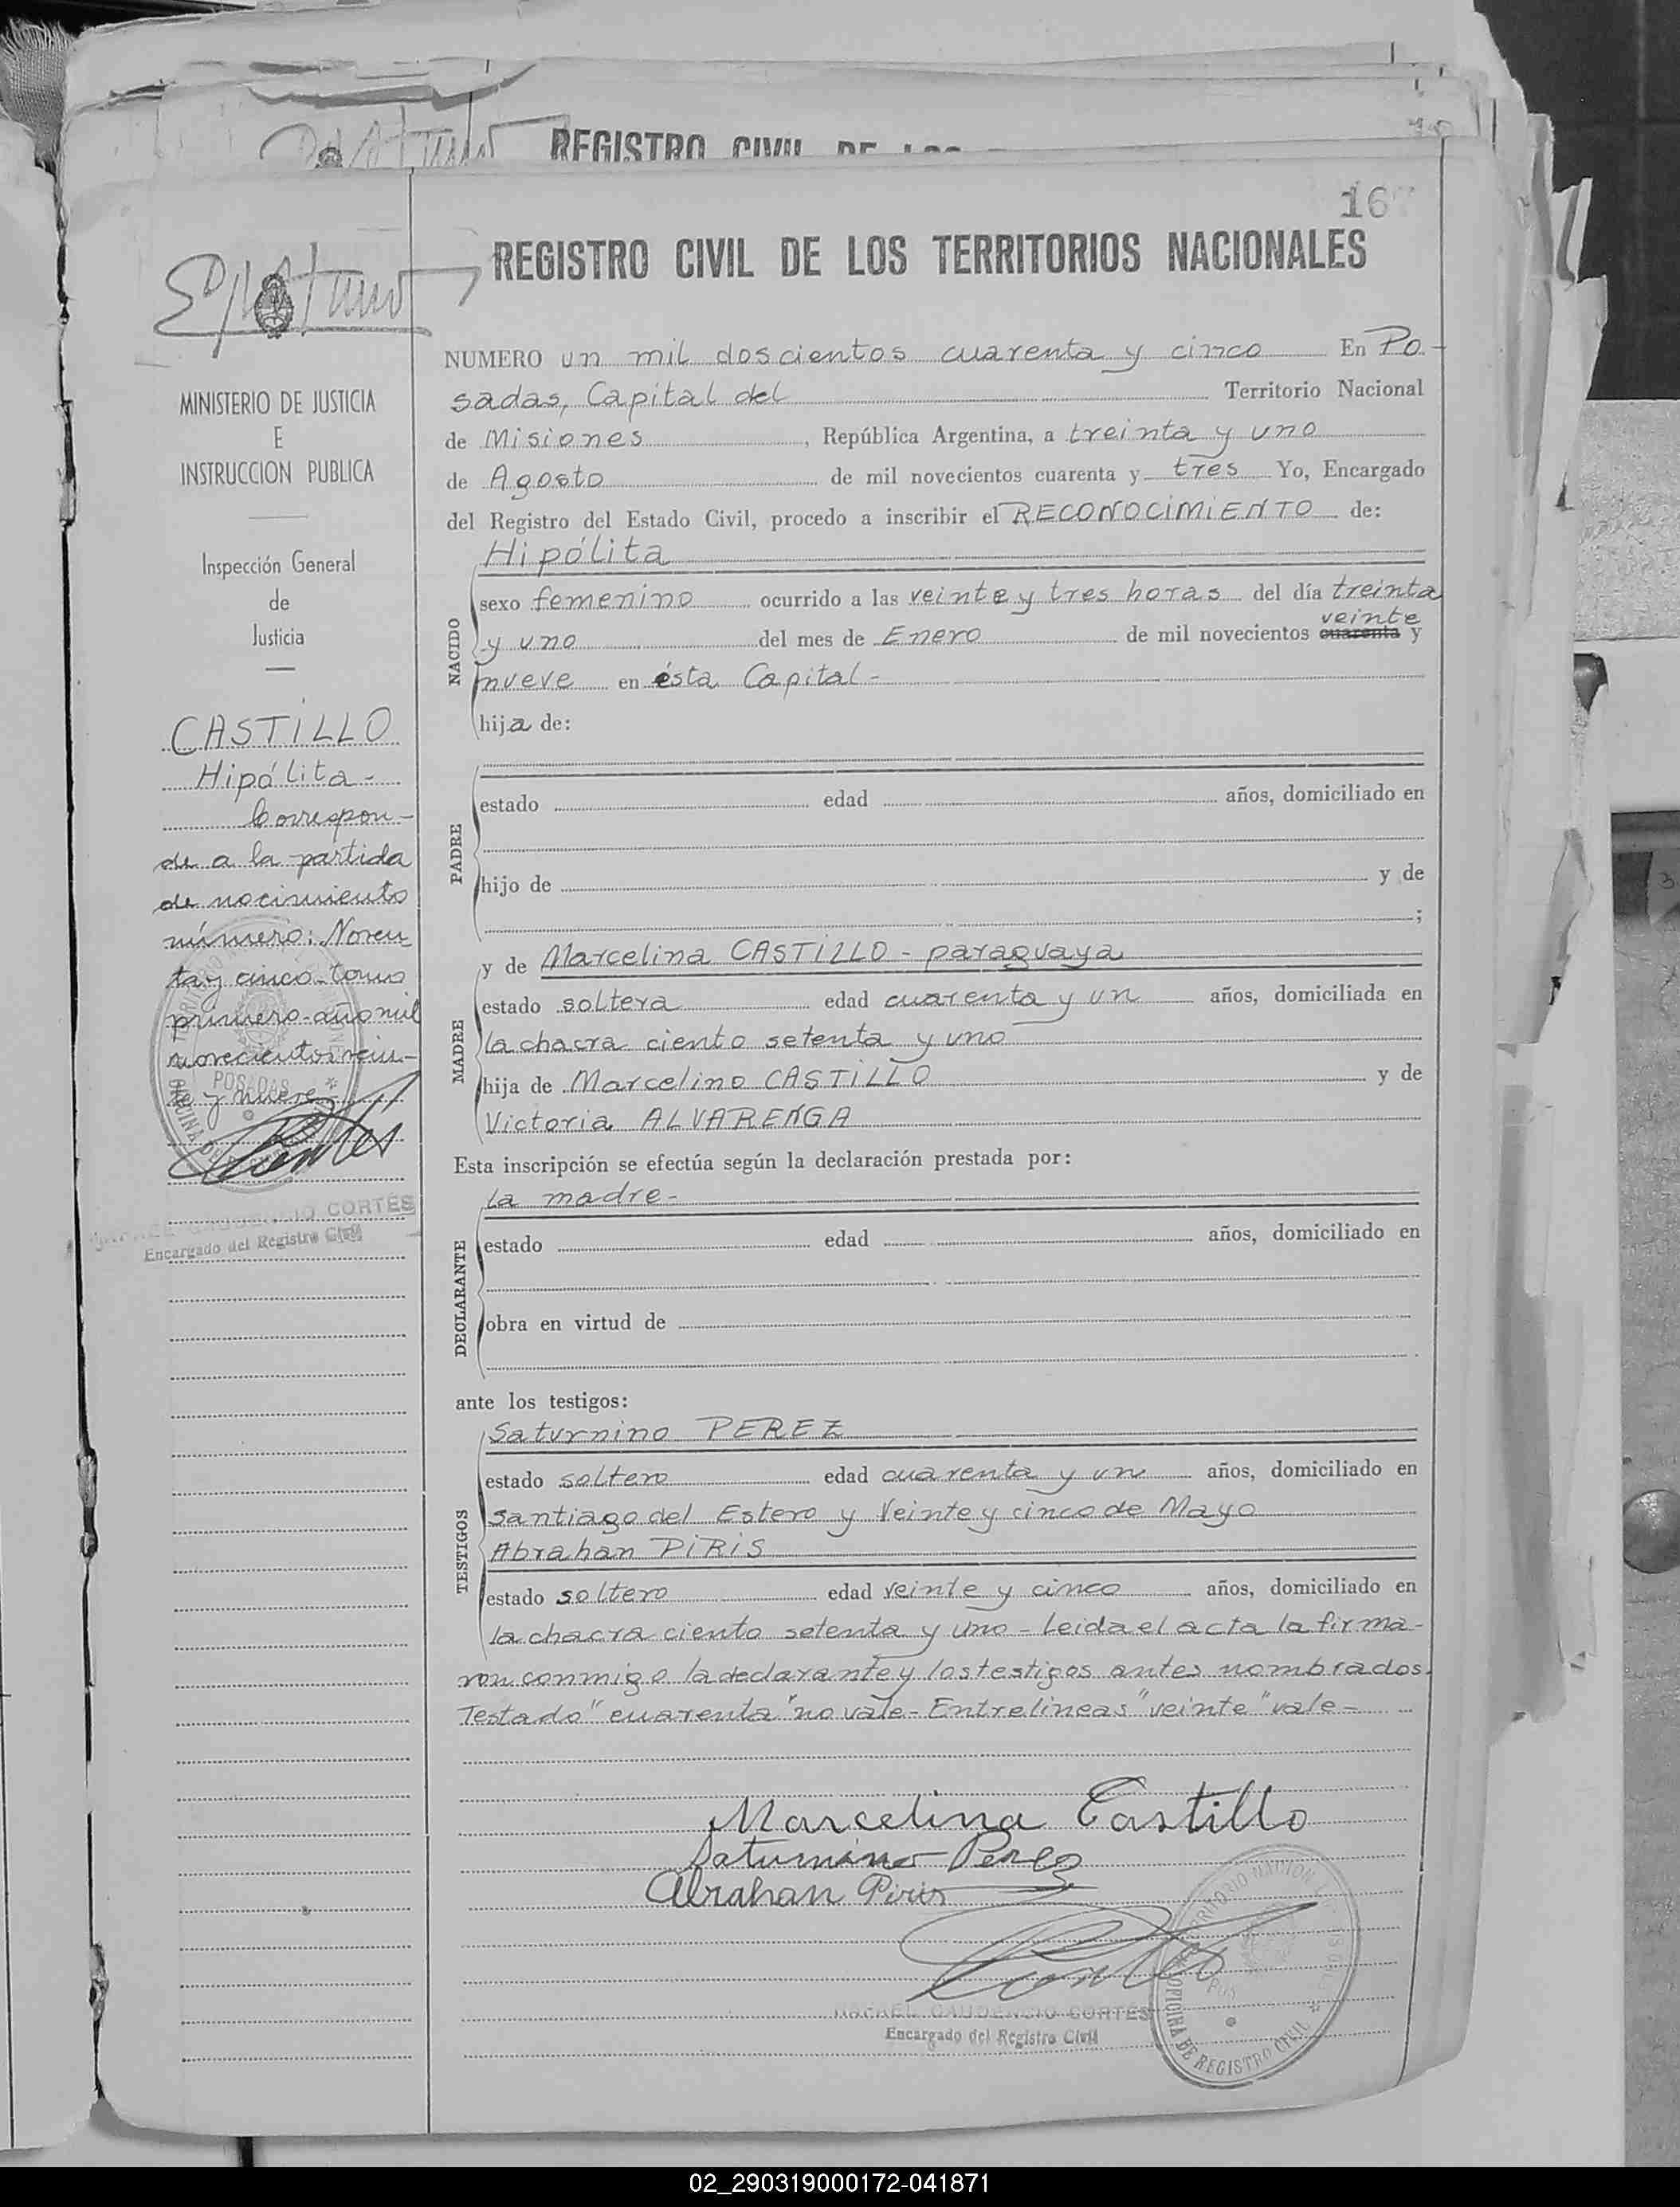 REGISTRO CIVIL DE LOS
16
REGISTRO CIVIL DE LOS TERRITORIOS NACIONALES
MINISTERIO DE JUSTICIA
E
INSTRUCCION PUBLICA
Inspección General
de
Justicia
CASTILLO
Hipólita-
Correspon-
de a la partida
de nacimiento
número: Noven
ta y cinco-tomo
primero-año mil
novecientos vein-
te y nueve
POSADAS
GAUDENCIO CORTÉS
Encargado del Registro Civil
NUMERO un mil doscientos cuarenta y cinco En Po-
sadas, Capital del Territorio Nacional
de Misiones, República Argentina, a treinta y uno
de Agosto de mil novecientos cuarenta y tres Yo, Encargado
del Registro del Estado Civil, procedo a inscribir el RECONOCIMIENTO de:
Hipólita
NACIDO
sexo femenino ocurrido a las veinte y tres horas del día treinta
veinte
y uno del mes de Enero de mil novecientos cuarenta y
nueve en ésta Capital-
hija de:
PADRE
estado edad años, domiciliado en
hijo de y de
;
y de Marcelina CASTILLO - paraguaya
MADRE
estado soltera edad cuarenta y un años, domiciliada en
la chacra ciento setenta y uno
hija de Marcelino CASTILLO y de
Victoria ALVARENGA
Esta inscripción se efectúa según la declaración prestada por:
la madre-
DECLARANTE
estado edad años, domiciliado en
obra en virtud de
ante los testigos:
Saturnino PEREZ
TESTIGOS
estado soltero edad cuarenta y un años, domiciliado en
Santiago del Estero y Veinte y cinco de Mayo
Abrahan PIRIS
estado soltero edad veinte y cinco años, domiciliado en
la chacra ciento setenta y uno - Leida el acta la firma-
ron conmigo la declarante y los testigos antes nombrados.
Testado "cuarenta" no vale - Entrelineas "veinte" vale-
Marcelina Castillo
Saturnino Perez
Abrahan Piris
RAFAEL GAUDENCIO CORTÉS
Encargado del Registro Civil
OFICINA DE REGISTRO CIVIL
02_290319000172-041871